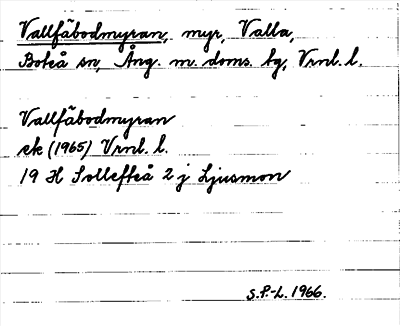 Vallfäbodmyran, myr, Valla,
Boteå sn, Ång. m. doms. bg, Vrnl. l.
Vallfäbodmyran
ek (1965) Vrnl. l.
19 H Sollefteå 2 j Ljusmon
S.P.-L. 1966.